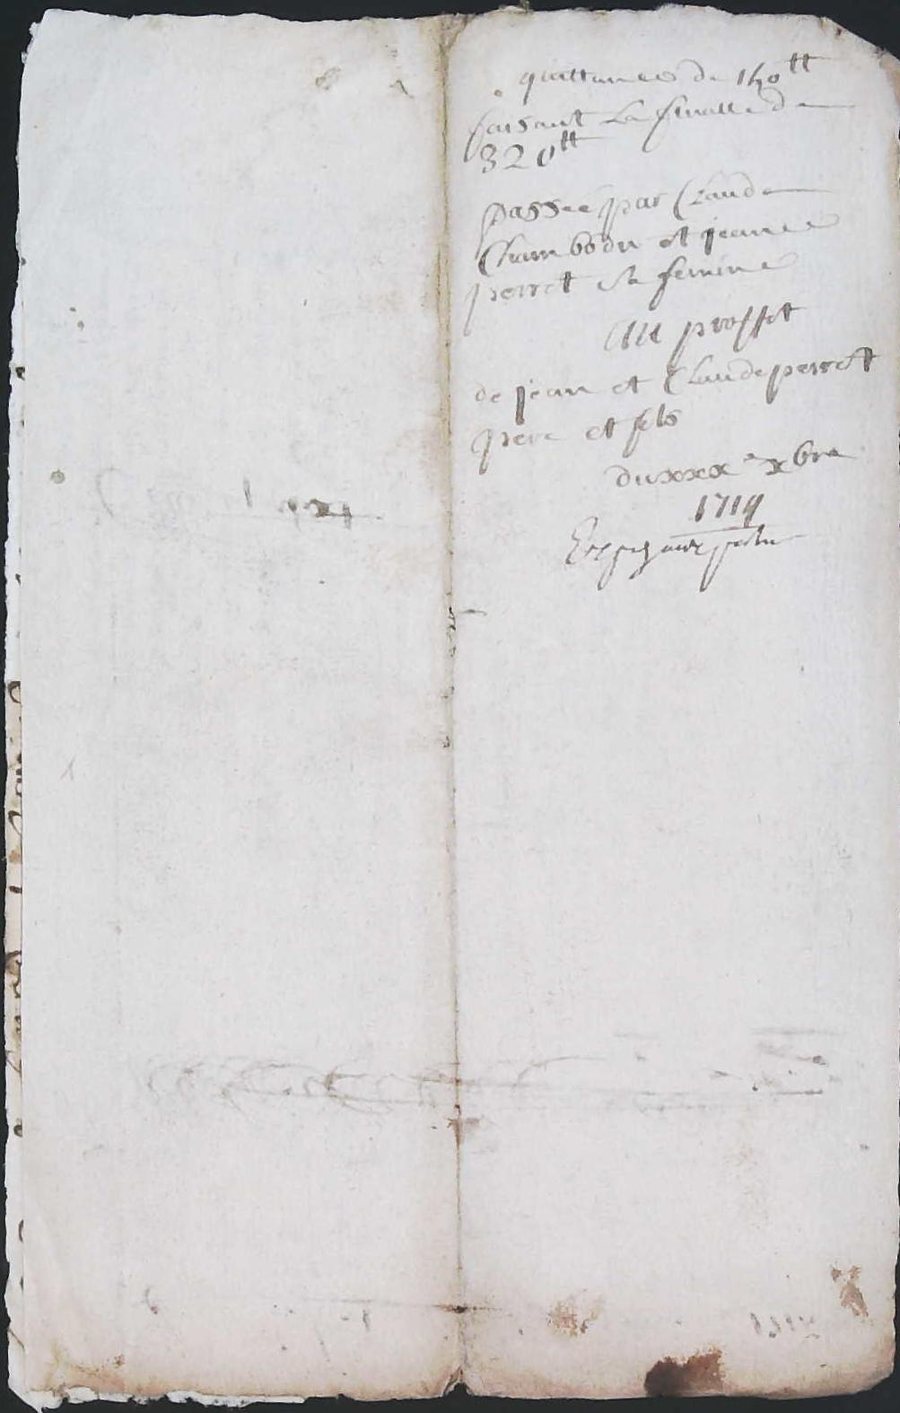 quittance de 140tt
faisant la finalle de
320tt
passée par Claude
Chambodu et jeanne
perret sa femme
Au proffit
de jean et Claude perret
pere et fils
du xxxe xbre
1714